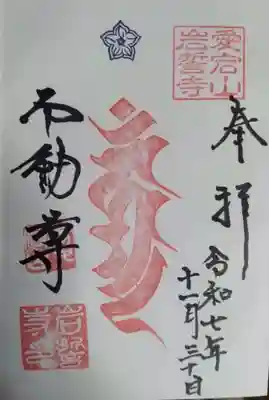 奉拝
令和七年
十一月三十日
愛宕山
岩誓寺
不動尊